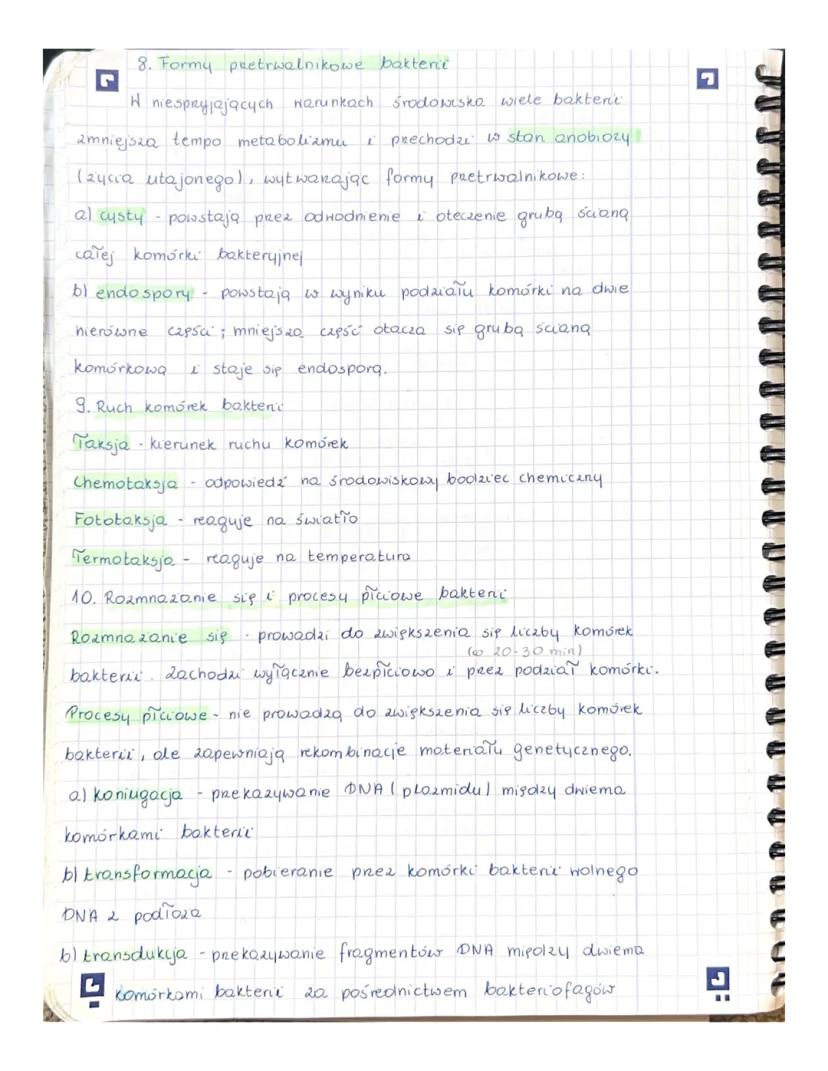 8. Formy przetrwalnikowe bakterii
W niesprzyjających warunkach środowiska wiele bakterii
zmniejsza tempo metabolizmu i przechodzi w stan anabiozy
(życia utajonego), wytwarzając formy przetrwalnikowe:
a) cysty - powstają przez odwodnienie i otoczenie grubą ścianą
całej komórki bakteryjnej
b) endospory - powstają w wyniku podziału komórki na dwie
nierówne części; mniejsza część otacza się grubą ścianą
komórkową i staje się endosporą.
9. Ruch komórek bakterii
Taksja - kierunek ruchu komórek
Chemotaksja - odpowiedź na środowiskowy bodziec chemiczny
Fototaksja - reaguje na światło
Termotaksja - reaguje na temperatura
10. Rozmnażanie się i procesy płciowe bakterii
Rozmnażanie się - prowadzi do zwiększenia się liczby komórek
(co 20-30 min)
bakterii. Zachodzi wyłącznie bezpłciowo i przez podział komórki.
Procesy płciowe - nie prowadzą do zwiększenia się liczby komórek
bakterii, ale zapewniają rekombinacje materiału genetycznego.
a) koniugacja - przekazywanie DNA (plazmidu) między dwiema
komórkami bakterii
b) transformacja - pobieranie przez komórki bakterii wolnego
DNA z podłoża
b) transdukcja - przekazywanie fragmentów DNA między dwiema
komórkami bakterii za pośrednictwem bakteriofagów